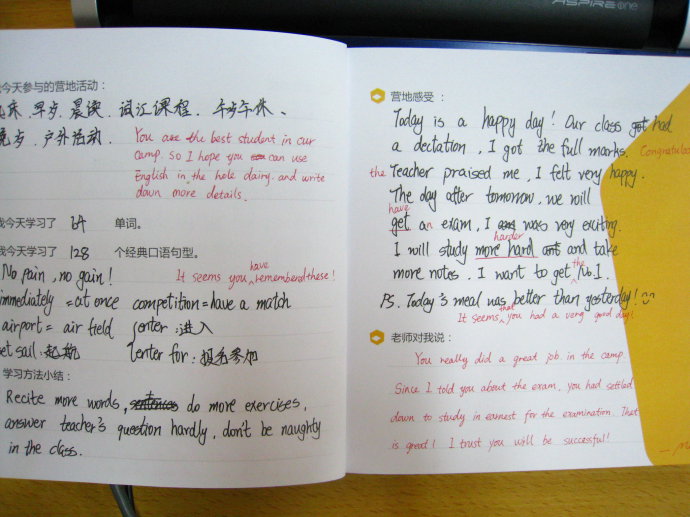 ASPIRE one
我今天参与的营地活动：
起床、早步、晨读、词汇课程、午步午休、
晚步、户外活动.
You are the best student in our
camp. so I hope you can use
English in the hole dairy. and write
down more details.
我今天学习了 64 单词。
我今天学习了 128 个经典口语句型。
No pain, no gain!
It seems you have remembered these!
immediately = at once competition = have a match
airport = air field enter : 进入
set sail : 起航 enter for : 报名参加
学习方法小结：
Recite more words, sentences do more exercises,
answer teacher's question hardly, don't be naughty
in the class.
营地感受：
Today is a happy day! Our class got had
a dectation, I got the full marks. Congratula
the Teacher praised me, I felt very happy.
The day after tomorrow, we will
have
get an exam, I was very exciting.
harder
I will study more hard and take
more notes, I want to get the No1.
PS. Today's meal was better than yesterday!
It seems that you had a very good day!
老师对我说：
You really did a great job in the camp.
Since I told you about the exam, you had settled
down to study in earnest for the examination. That
is great! I trust you will be successful!